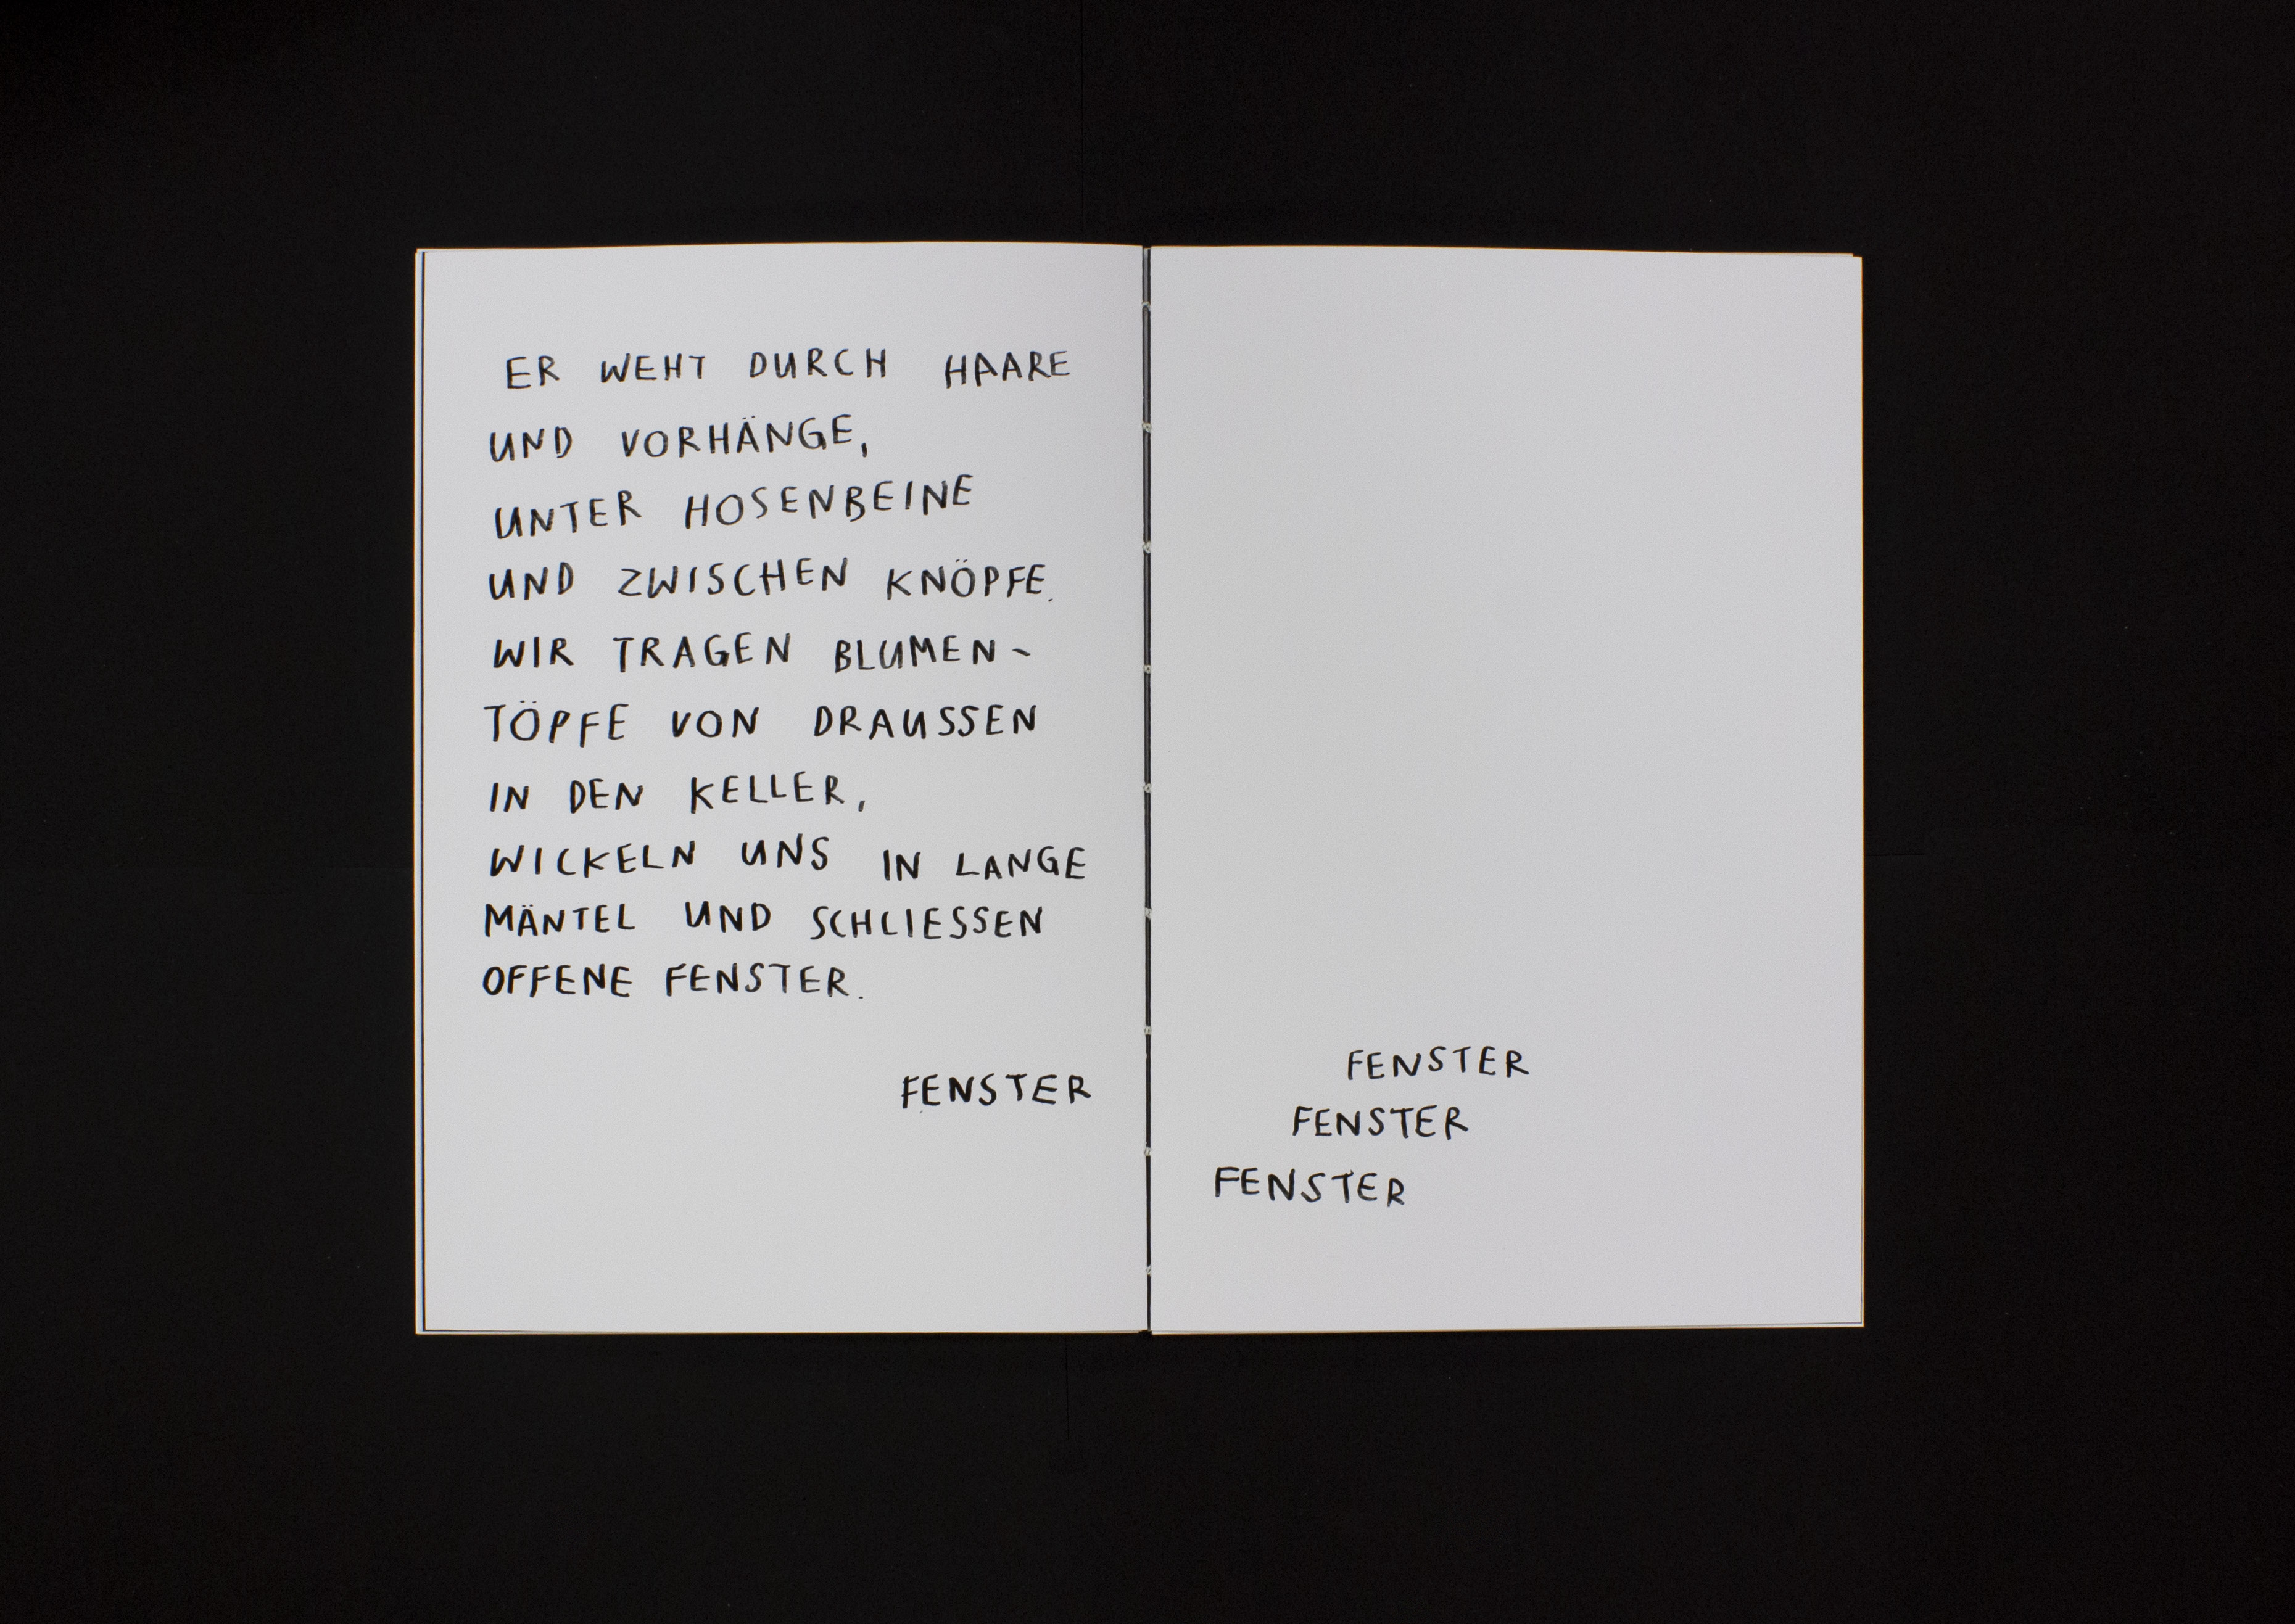 ER WEHT DURCH HAARE
UND VORHÄNGE,
UNTER HOSENBEINE
UND ZWISCHEN KNÖPFE.
WIR TRAGEN BLUMEN-
TÖPFE VON DRAUSSEN
IN DEN KELLER,
WICKELN UNS IN LANGE
MÄNTEL UND SCHLIESSEN
OFFENE FENSTER.
FENSTER
FENSTER
FENSTER
FENSTER